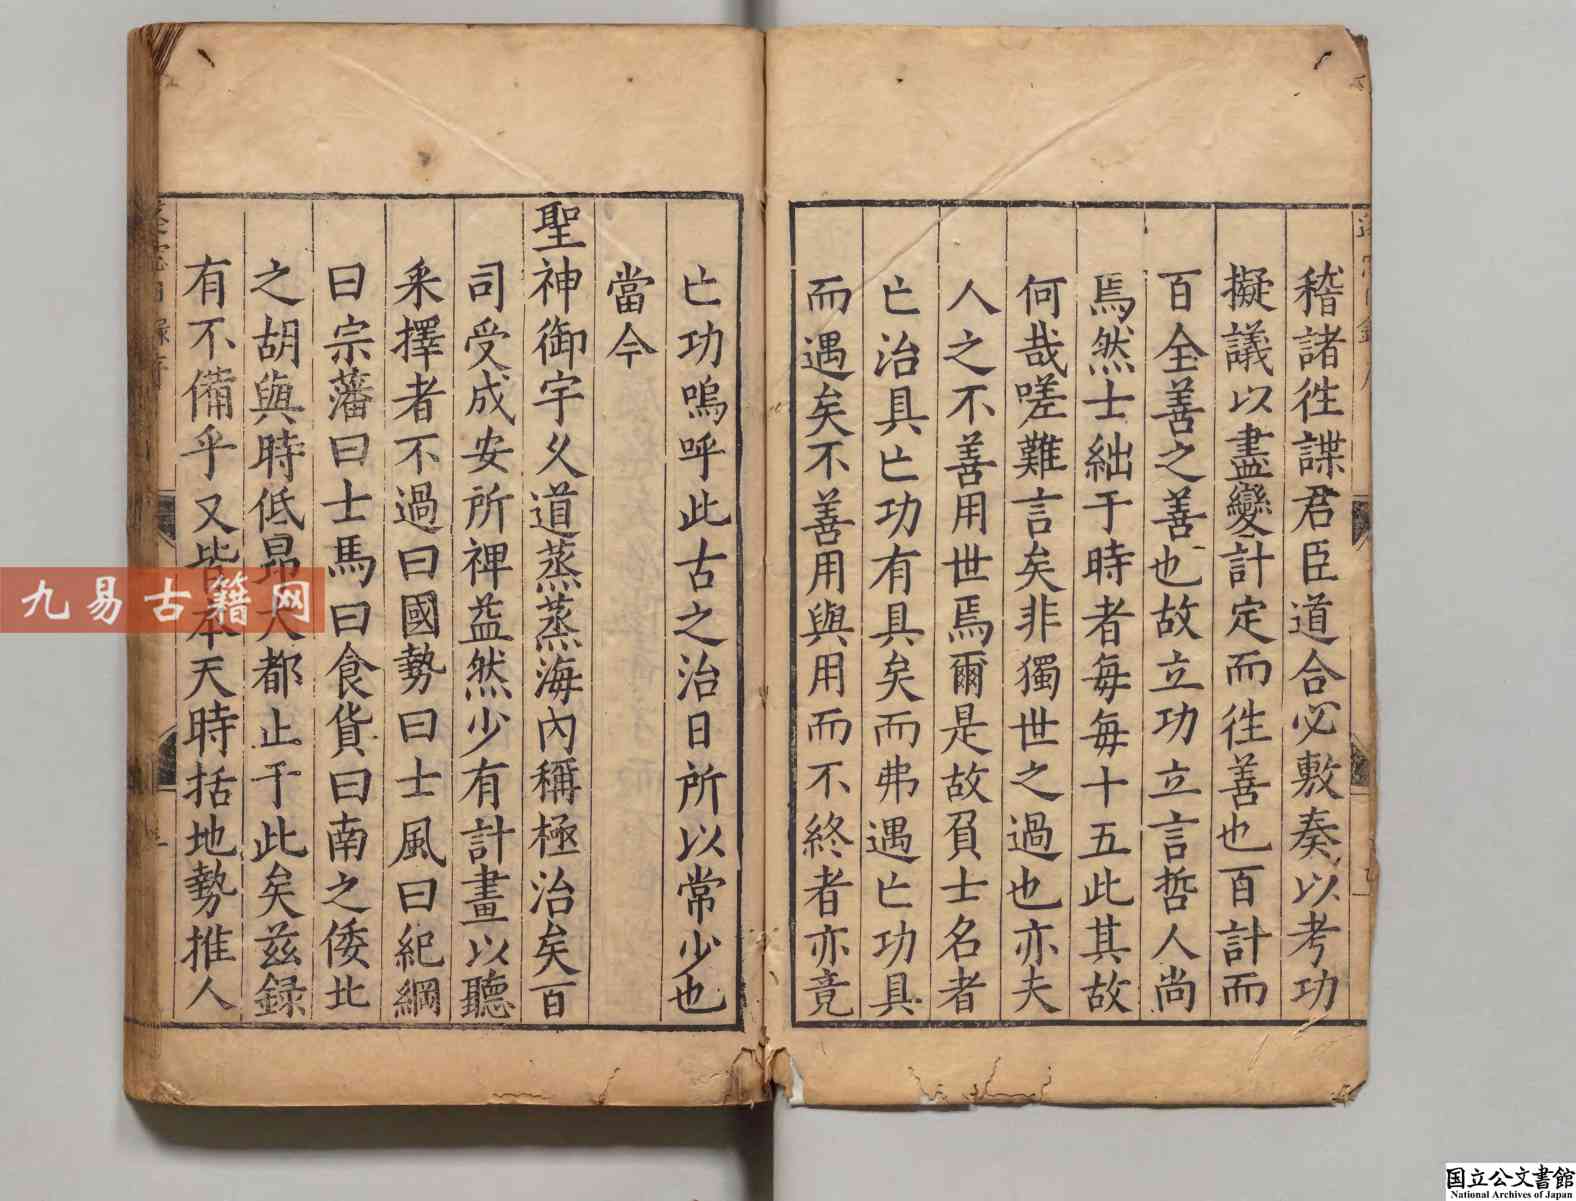 稽諸徃諜君臣道合必敷奏以考功
擬議以盡變計定而徃善也百計而
百全善之善也故立功立言哲人尚
焉然士絀于時者每每十五此其故
何哉嗟難言矣非獨世之過也亦夫
人之不善用世焉爾是故負士名者
亡治具亡功有具矣而弗遇亡功具
而遇矣不善用與用而不終者亦竟
亡功嗚呼此古之治日所以常少也
當今
聖神御宇久道蒸蒸海內稱極治矣百
司受成安所裨益然少有計畫以聽
采擇者不過曰國勢曰士風曰紀綱
曰宗藩曰士馬曰食貨曰南之倭北
之胡與時低昂大都止于此矣茲録
有不備乎又皆本天時括地勢推人
九易古籍网
国立公文書館
National Archives of Japan